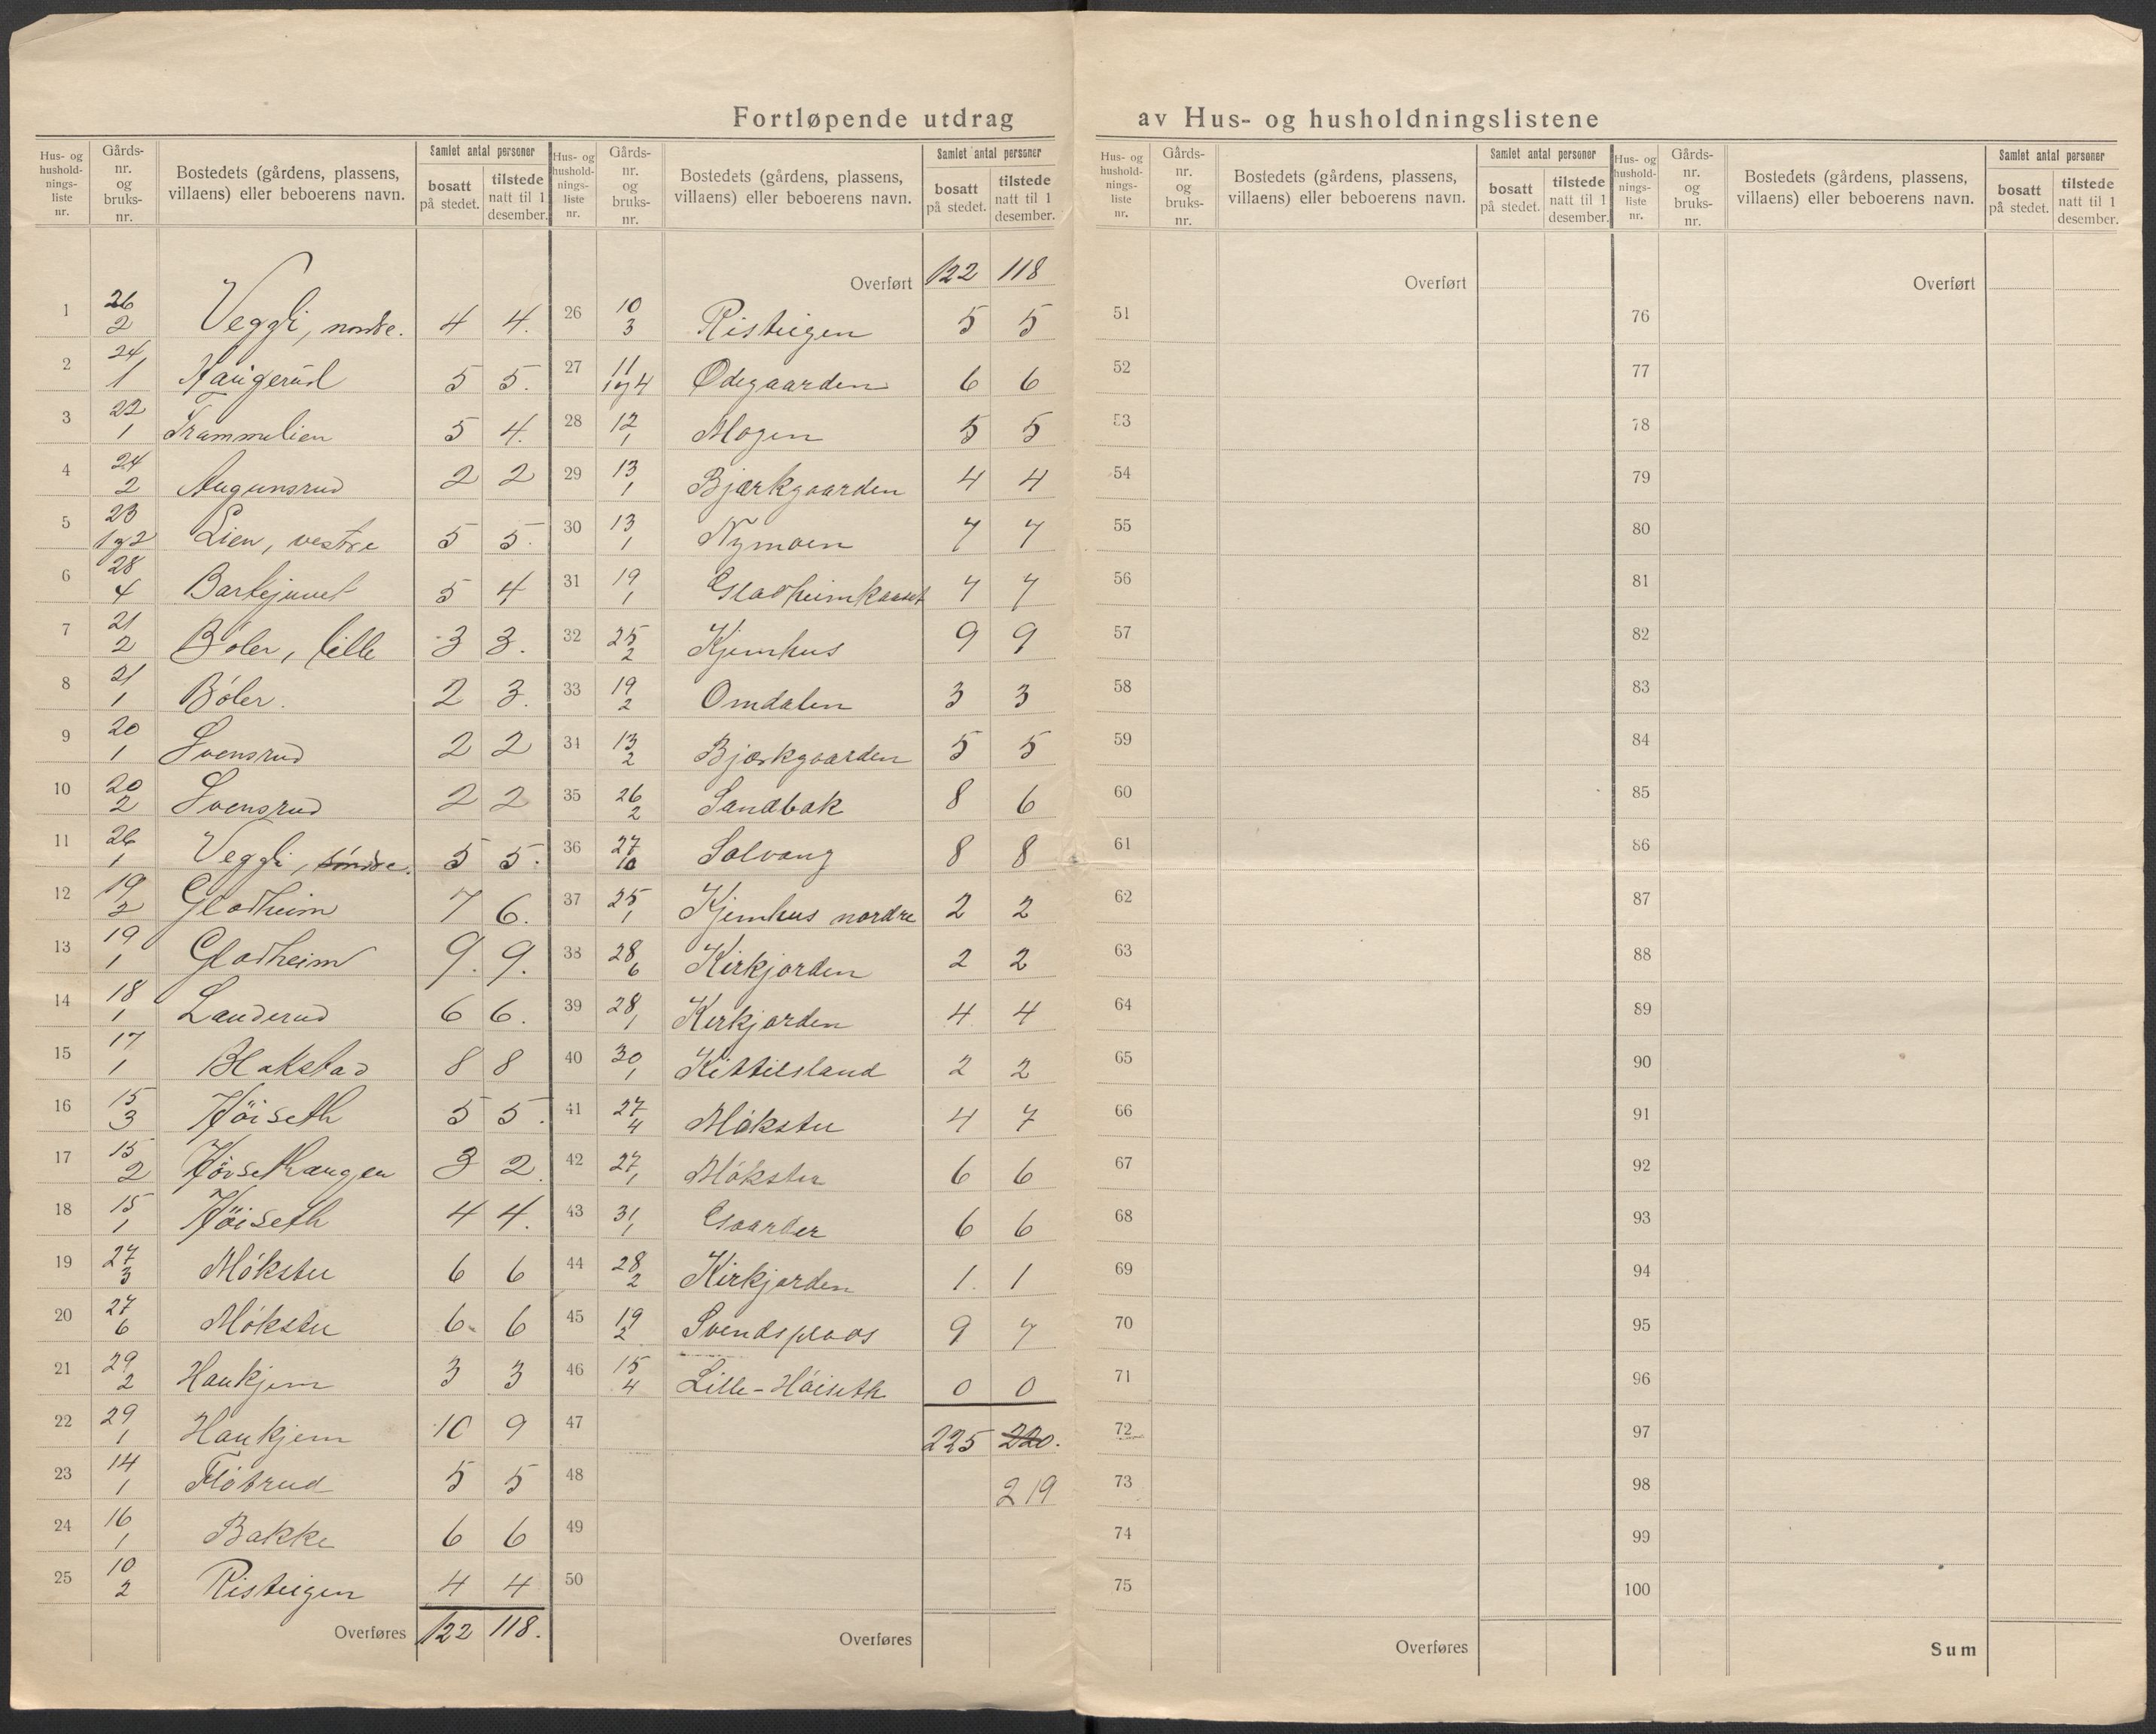 Fortløpende utdrag av Hus- og husholdningslistene
Hus- og husholdnings-liste nr. | Gårds-nr. og bruks-nr. | Bostedets (gårdens, plassens, villaens) eller beboerens navn. | Samlet antal personer bosatt på stedet. | tilstede natt til 1 desember.
1 26/2 Veggli, nordre. 4 4.
2 24/1 Haugerud 5 5.
3 22/1 Trammelien 5 4.
4 24/2 Augunsrud 2 2
5 23/1 og 2 Lien, vestre 5 5.
6 28/4 5 4
7 21/2 Bøler, lille 3 3.
8 21/1 Bøler. 2 3.
9 20/1 Svensrud 2 2
10 20/2 Svensrud 2 2
11 26/1 Veggli, søndre. 5 5.
12 19/2 Gladheim 7 6.
13 19/1 Gladheim 9. 9.
14 18/1 Landerud 6 6.
15 17/1 Blakstad 8 8
16 15/3 Høiseth 5 5.
17 15/2 Høisethaugen 3 2.
18 15/1 Høiseth 4 4.
19 27/3 Mökstu 6 6
20 27/6 Mökstu 6 6
21 29/2 Haukjem 3 3
22 29/1 Haukjem 10 9
23 14/1 5 5
24 16/1 Bakke 6 6
25 10/2 Risteigen 4 4
Overføres 122 118.
Hus- og husholdnings-liste nr. | Gårds-nr. og bruks-nr. | Bostedets (gårdens, plassens, villaens) eller beboerens navn. | Samlet antal personer bosatt på stedet. | tilstede natt til 1 desember.
Overført 122 118
26 10/3 Risteigen 5 5
27 11/1 og 4 Ødegaarden 6 6
28 12/1 Mogen 5 5
29 13/1 Bjørkgaarden 4 4
30 13/1 Nymoen 7 7
31 19/1 7 7
32 25/2 Kjemhus 9 9
33 19/2 Omdalen 3 3
34 13/2 Bjørkgaarden 5 5
35 26/2 Sandbak 8 6
36 27/10 Solvang 8 8
37 25/1 Kjemhus nordre 2 2
38 28/6 Kirkjorden 2 2
39 28/1 Kirkjorden 4 4
40 30/1 Kittilsland 2 2
41 27/4 Mökstu 4 7
42 27/1 Mökstu 6 6
43 31/1 Gaarder 6 6
44 28/2 Kirkjorden 1. 1
45 19/2 Svendsplads 9 7
46 15/4 Lille-Høiseth 0 0
47 225 220.
48 219
49
50
Overføres
Hus- og husholdnings-liste nr. | Gårds-nr. og bruks-nr. | Bostedets (gårdens, plassens, villaens) eller beboerens navn. | Samlet antal personer bosatt på stedet. | tilstede natt til 1 desember.
Overført
51
52
53
54
55
56
57
58
59
60
61
62
63
64
65
66
67
68
69
70
71
72
73
74
75
Overføres
Hus- og husholdnings-liste nr. | Gårds-nr. og bruks-nr. | Bostedets (gårdens, plassens, villaens) eller beboerens navn. | Samlet antal personer bosatt på stedet. | tilstede natt til 1 desember.
Overført
76
77
78
79
80
81
82
83
84
85
86
87
88
89
90
91
92
93
94
95
96
97
98
99
100
Sum